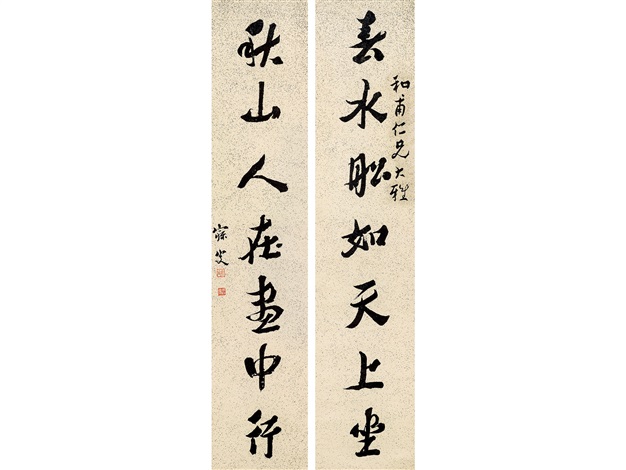 春水船如天上坐
和甫仁兄大雅
秋山人在畫中行
寐叟